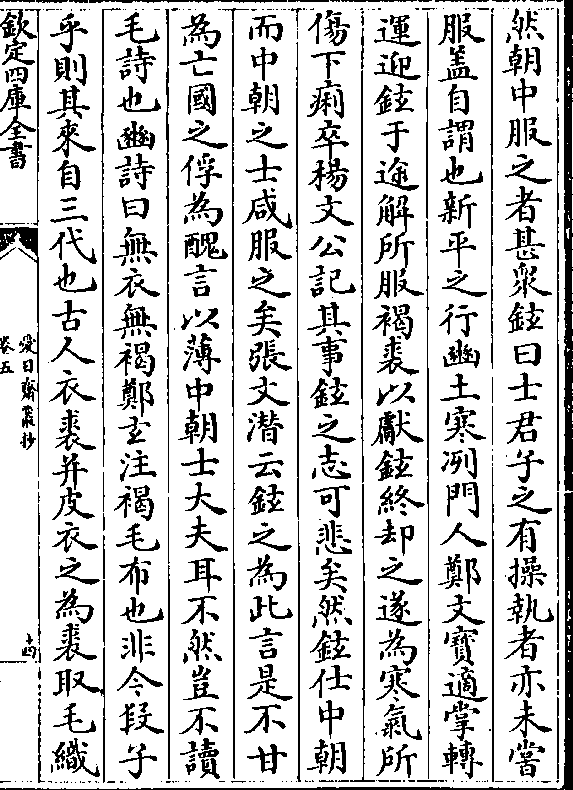 然朝中服之者甚衆鉉曰士君子之有操執者亦未嘗
服盖自謂也新平之行豳土寒冽門人鄭文寳適掌轉
運迎鉉于途解所服褐裘以獻鉉終却之遂為寒氣所
傷下痢卒楊文公記其事鉉之志可悲矣然鉉仕中朝
而中朝之士咸服之矣張文潛云鉉之為此言是不甘
為亡國之俘為醜言以薄中朝士大夫耳不然豈不讀
毛詩也豳詩曰無衣無褐鄭玄注褐毛布也非今段子
乎則其來自三代也古人衣裘并皮衣之為裘取毛織
欽定四庫全書
愛日齋叢抄
卷五
十四